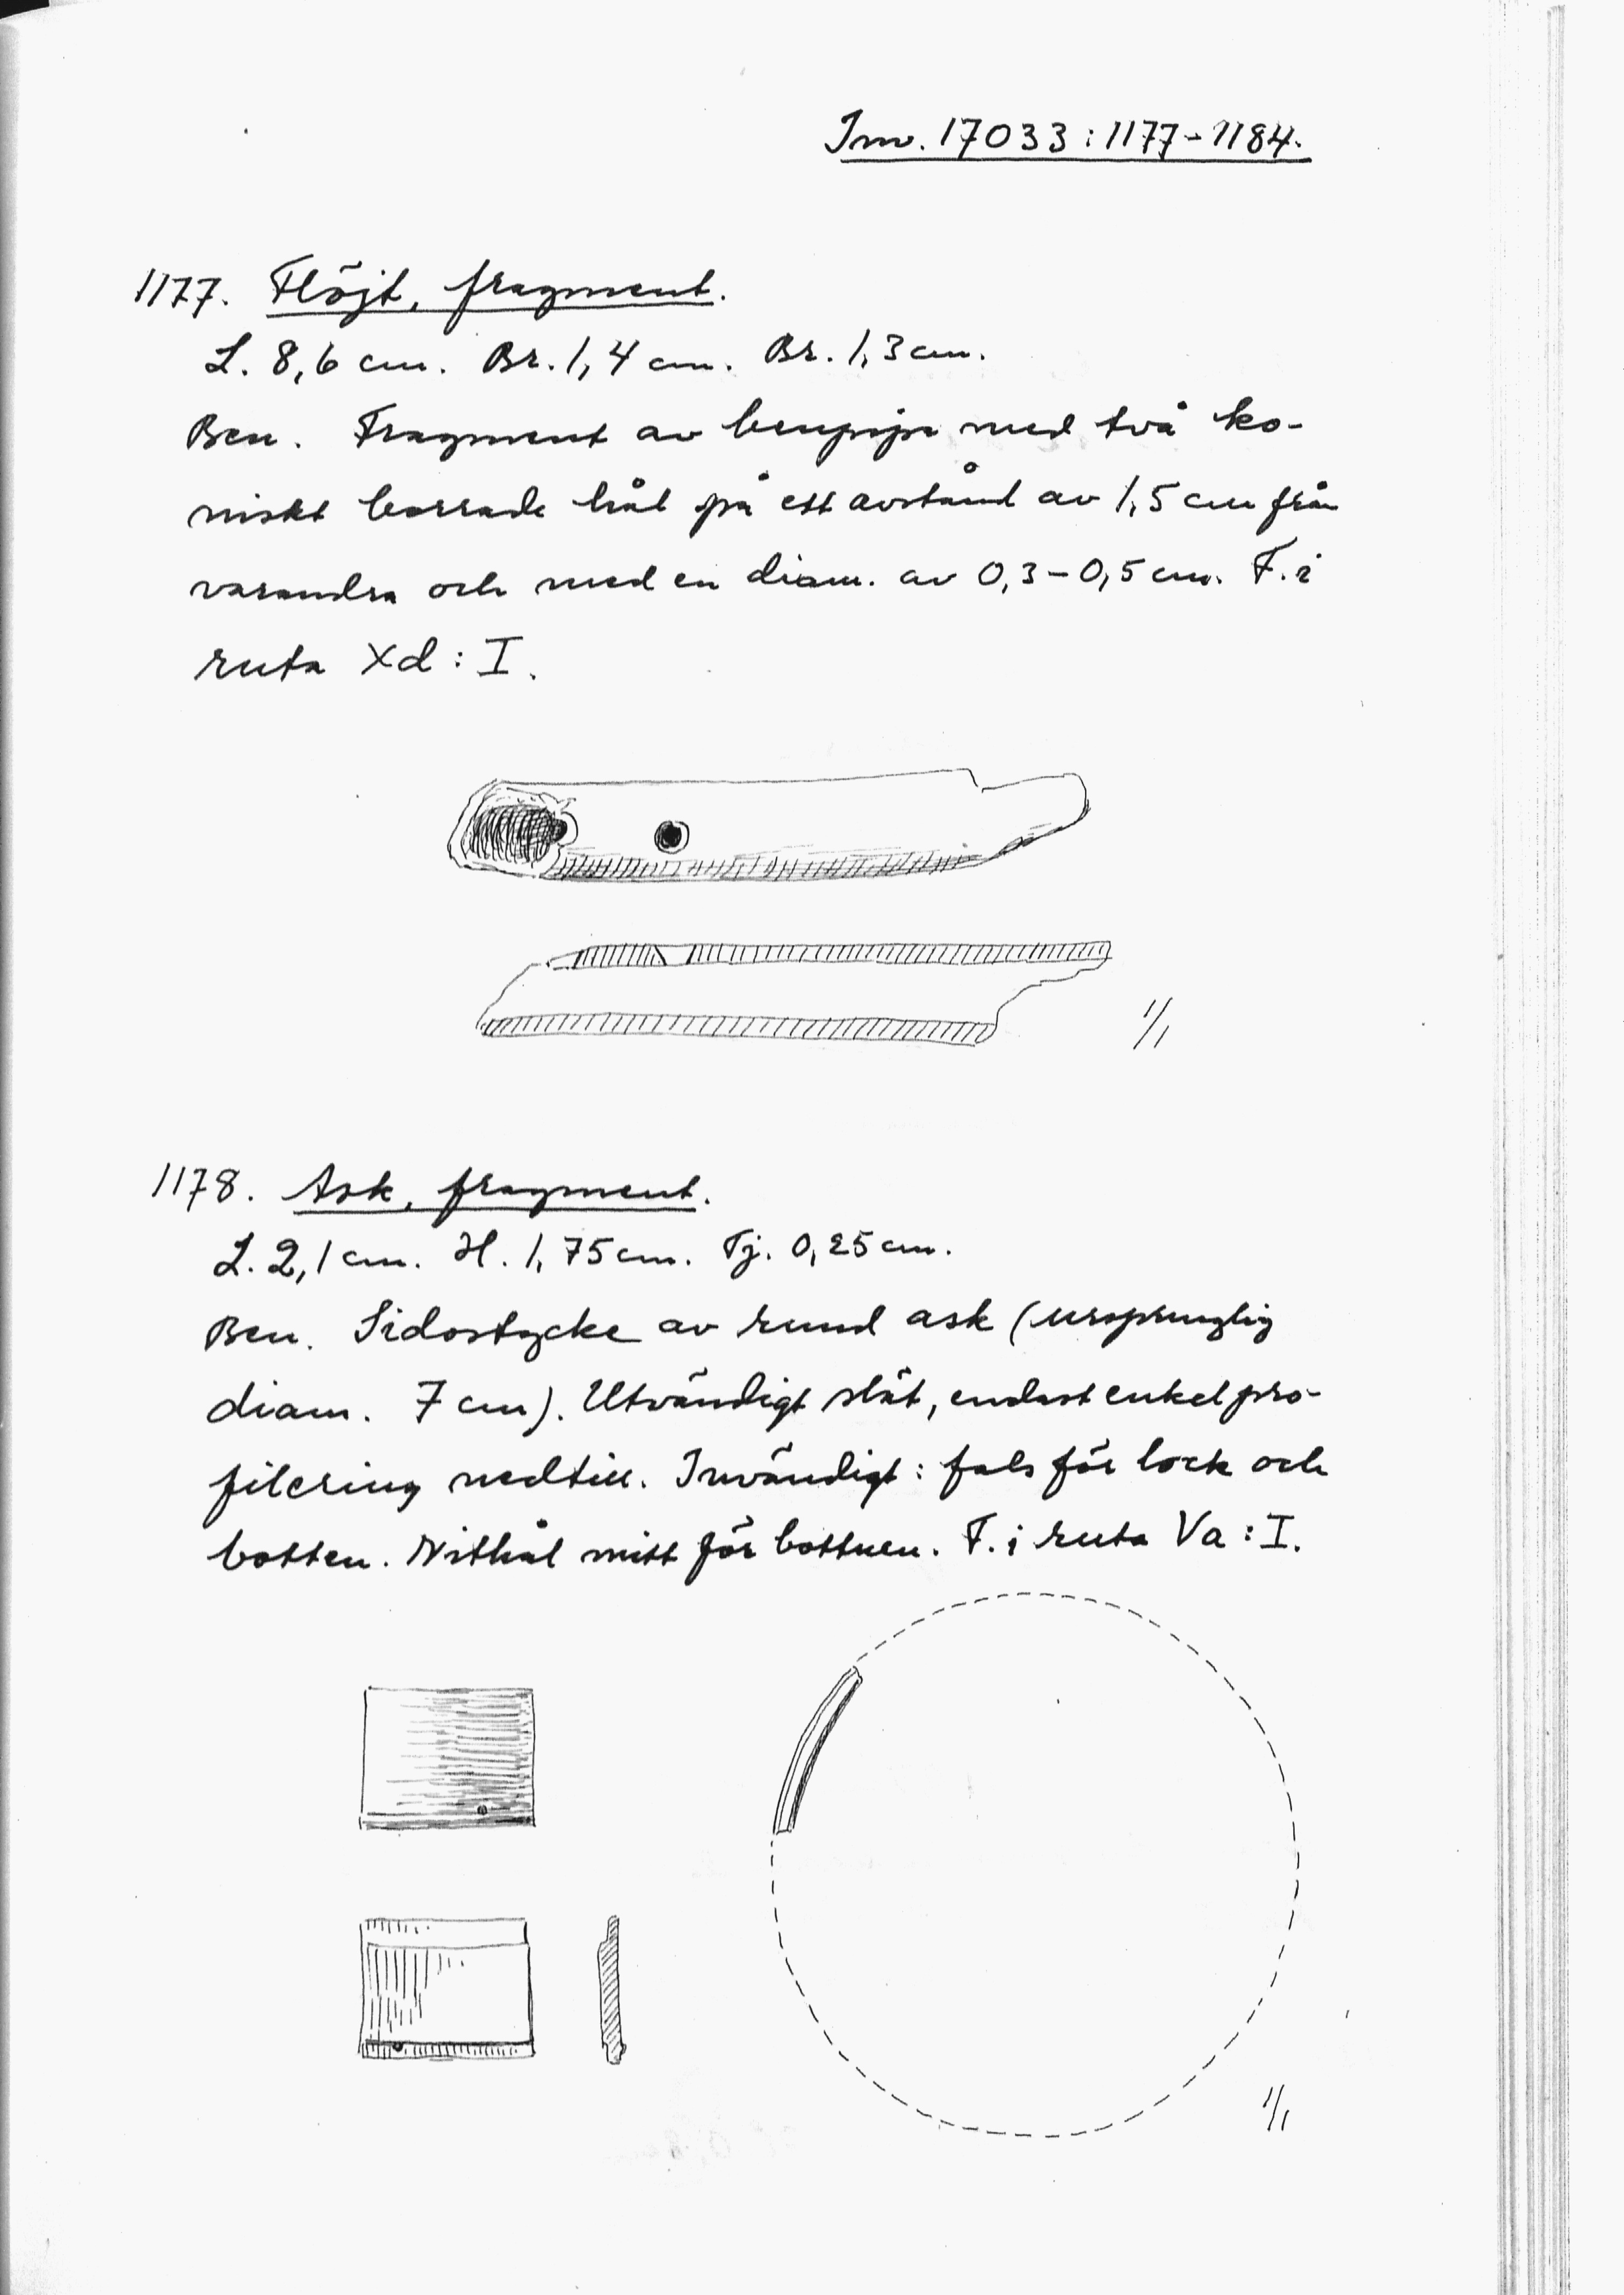 Inv. 17033:1177-1184.
1177. Flöjt, fragment.
L. 8,6 cm. Br. 1,4 cm. Br. 1,3 cm.
Ben. Fragment av benpipa med två ko-
niskt borrade hål på ett avstånd av 1,5 cm från
varandra och med en diam. av 0,3-0,5 cm. F. i
ruta Xd: I.
1/1
1178. Ask, fragment.
L. 2,1 cm. H. 1,75 cm. Tj. 0,25 cm.
Ben. Sidostycke av rund ask (ursprunglig
diam. 7 cm). Utvändigt slät, endast enkel pro-
filering nedtill. Invändigt: fals för lock och
botten. Nithål mitt för bottnen. F. i ruta Va: I.
1/1